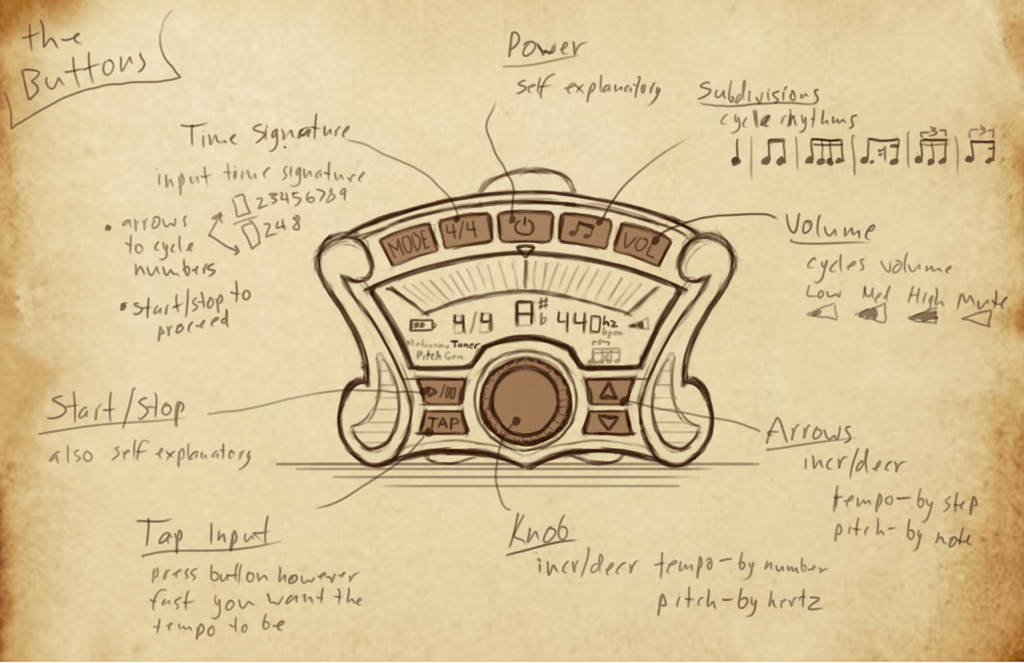 the
Buttons
Power
self explanatory
Subdivisions
cycle rhythms
3 3
Time signature
input time signature
23456789
248
• arrows
to cycle
numbers
• start/stop to
proceed
Volume
cycles volume
Low Med High Mute
MODE 4/4 VOL
4/4 A#b 440hz
bpm
Metronome Tuner
Pitch Gen
TAP
Start/Stop
also self explanatory
Arrows
incr/decr
tempo-by step
pitch-by note
Tap Input
press button however
fast you want the
tempo to be
Knob
incr/decr tempo-by number
pitch-by hertz